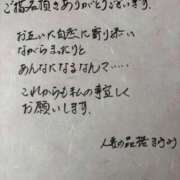 ご指名頂きありがとうございます。
お互いに自然に寄り添い
ながらまったりと
あんなになるなんて……
これからも私の事宜しく
お願いします。
人妻の品格 まゆみ